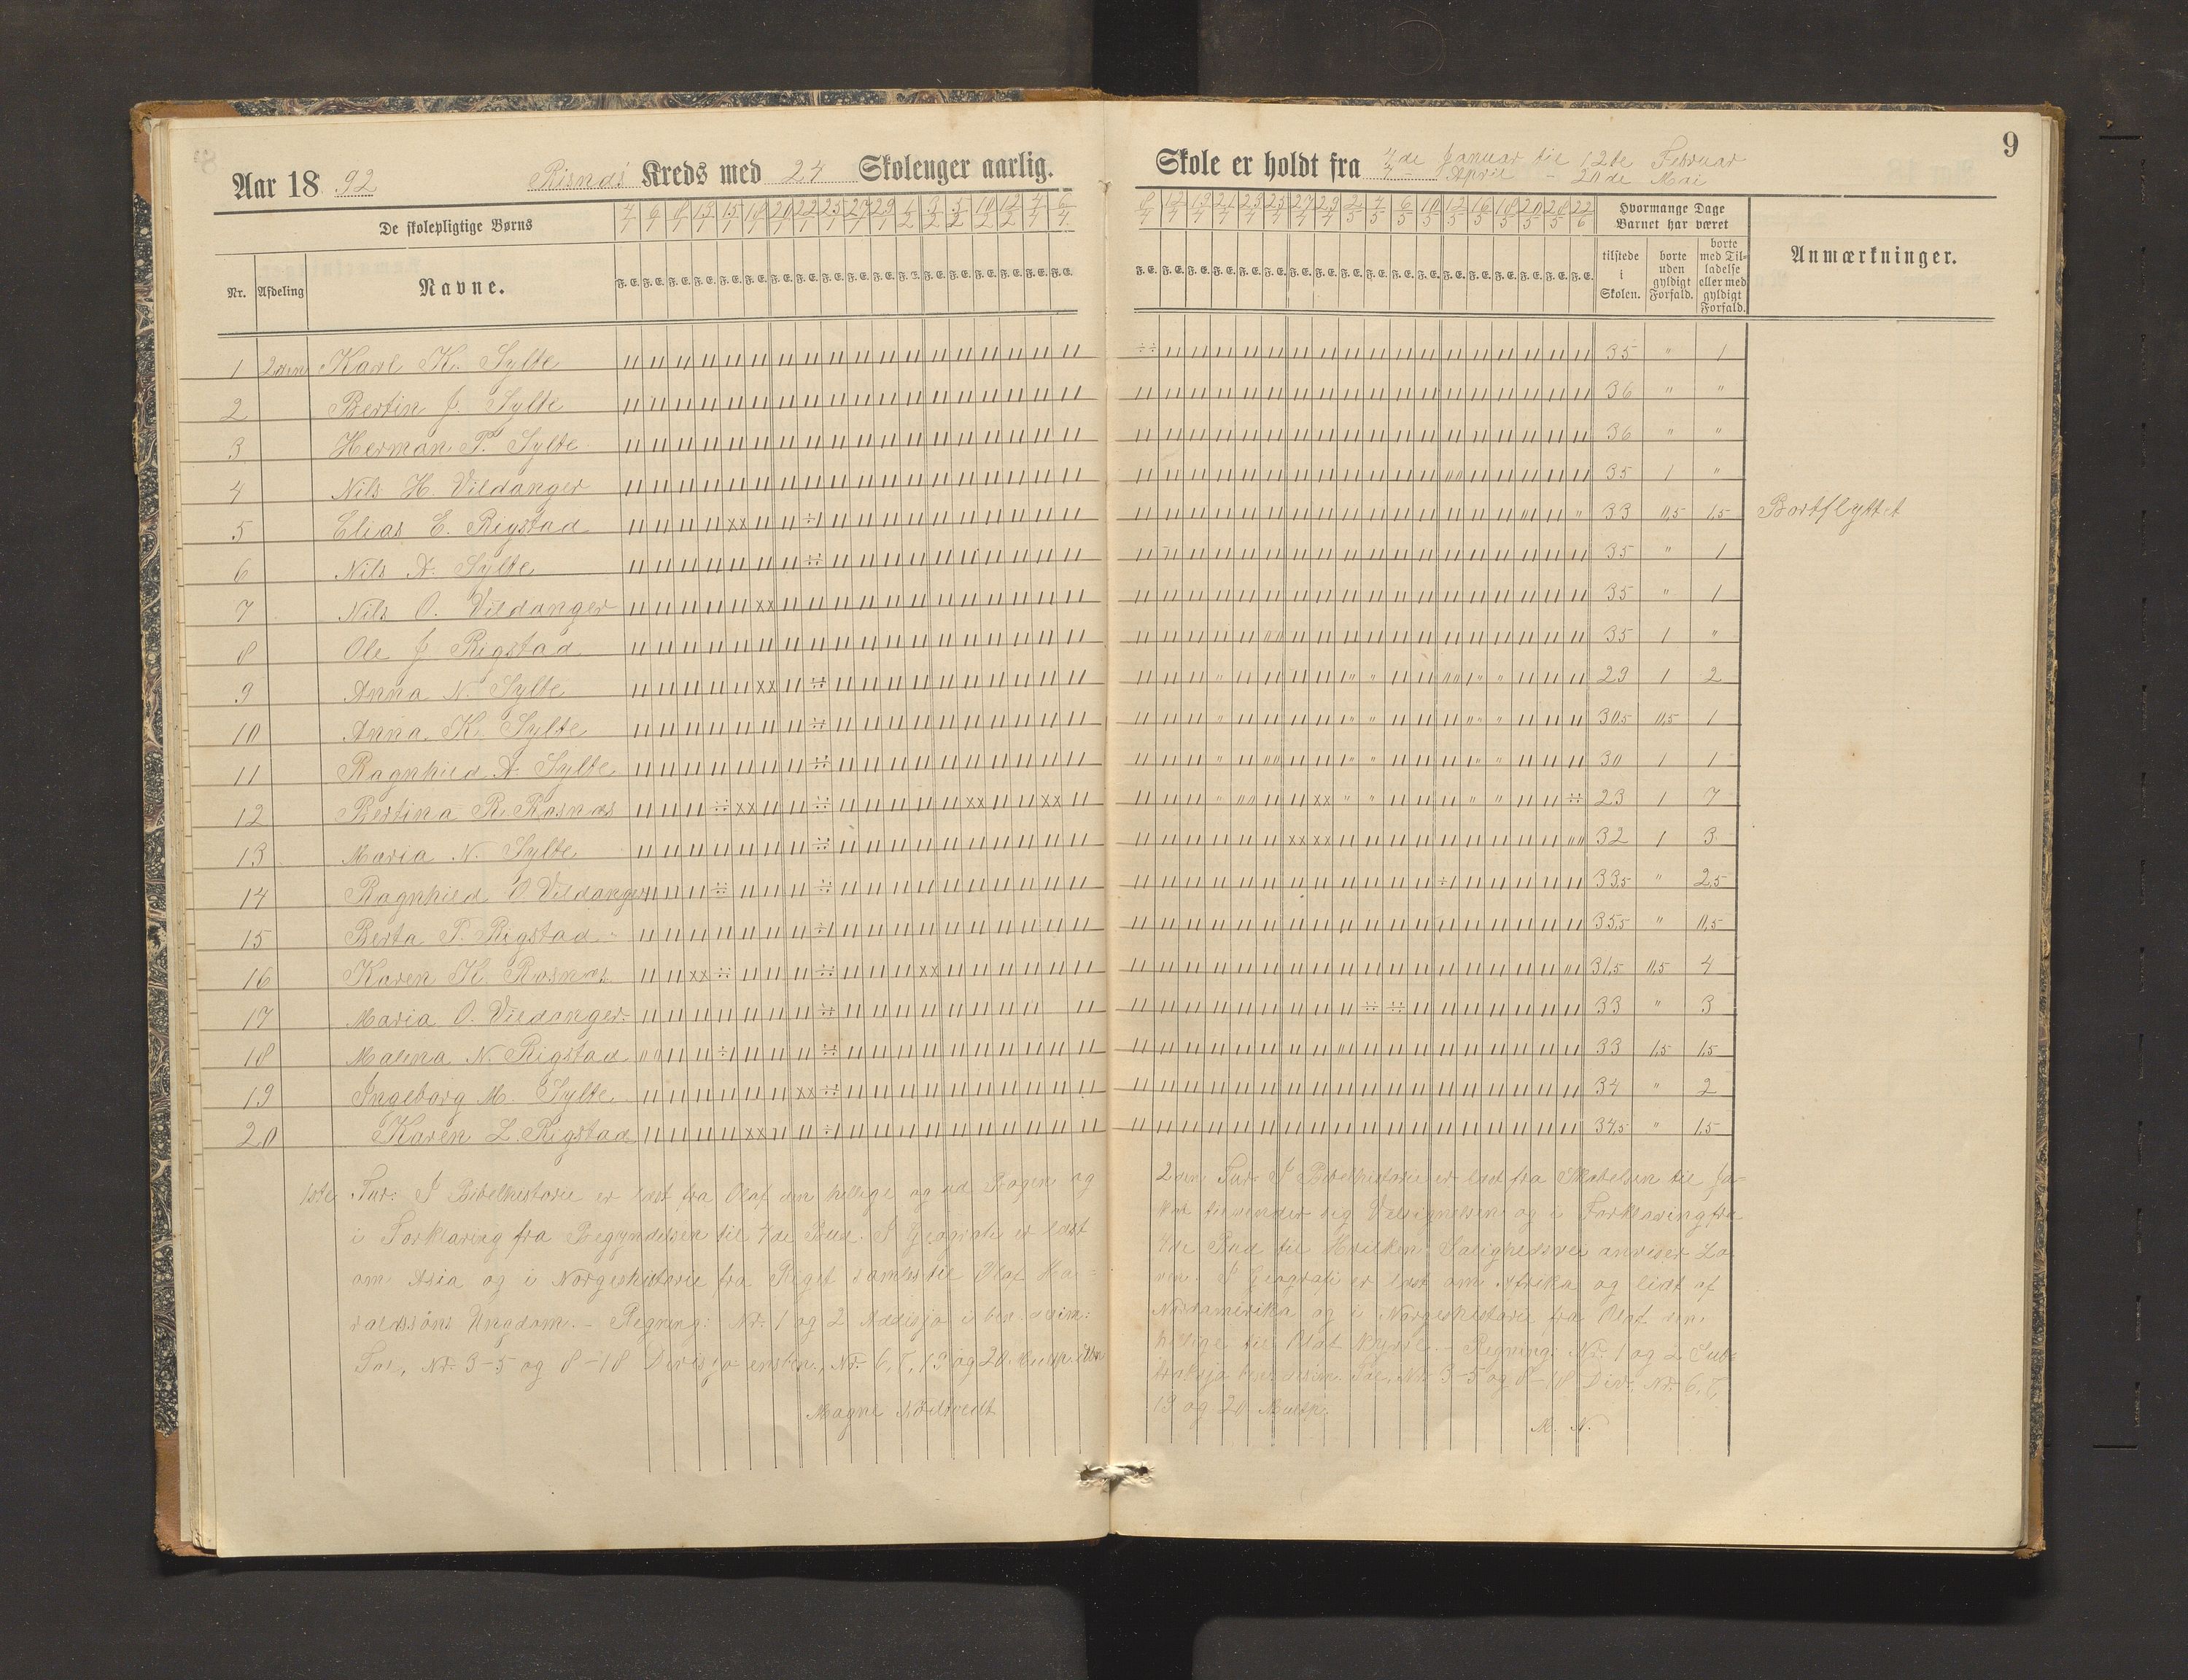 9
Aar 1892 Risnæs Kreds med 24 Skolenger aarlig.
Skole er holdt fra 4de Januar til 12te Februar
4 - April - 21de Mai
De skolepligtige Børns
Nr. Afdeling Navne.
F. E.
Hvormange Dage Barnet har været
tilstede i Skolen.
borte uden gyldigt Forfald.
borte med Tilladelse eller med gyldigt Forfald.
Anmærkninger.
1 2den Karl K. Sylte 35 " 1
2 Bertin J. Sylte 36 " "
3 Herman T. Sylte 36 " "
4 Nils H. Vildanger 35 1 "
5 Elias E. Rigstad 33 0,5 1,5 Bortflyttet
6 Nils A. Sylte 35 " 1
7 Nils O. Vildanger 35 " 1
8 Ole J. Rigstad 35 1 "
9 Anna N. Sylte 29 1 2
10 Anna K. Sylte 30,5 0,5 1
11 Ragnhild A. Sylte 30 1 1
12 Bertina R. Rosnæs 23 1 7
13 Maria N. Sylte 32 1 3
14 Ragnhild O. Vildanger 33,5 " 2,5
15 Berta T. Rigstad 35,5 " 0,5
16 Karen K. Rosnæs 31,5 0,5 4
17 Maria O. Vildanger 33 " 3
18 Malena N. Rigstad 33 1,5 1,5
19 Ingeborg M. Sylte 34 " 2
20 Karen L. Rigstad 34,5 " 1,5
1ste Tur: I Bibelhistorie er læst fra Olaf den hellige og ud Bogen og
i Forklaring fra Begyndelsen til 4de Bud. I Geografi er læst
om Asia og i Norgeshistorie fra Riget samles til Olaf Ha-
raldsøns Ungdom. - Regning: Nr. 1 og 2 Addisjo i ben.
Tal, Nr. 3-5 og 8-18 Divisjo ensben., Nr. 6, 7, 19 og 20
Magne
2den Tur. I Bibelhistorie er læst fra Skabelsen til Ja-
kob tilvender sig Velsignelsen og i Forklaring fra
4de Bud til Hvilken Salighedsvei anviser Lo-
ven. I Geografi er læst om Afrika og lidt af
Nordamerika og i Norgeshistorie fra Olaf den
hellige til Olaf Kyrre. - Regning: Nr. 1 og 2 Sub-
traksjo Tal, Nr. 3-5 og 8-18 Div., Nr. 6, 7,
19 og 20 Multp.
M. N.